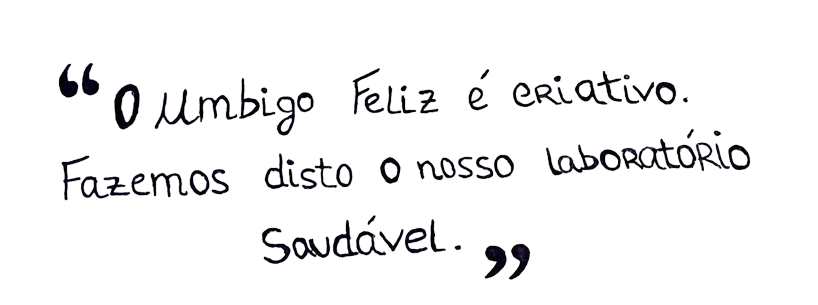 “O Umbigo Feliz é criativo.
Fazemos disto o nosso laboratório
Saudável.”